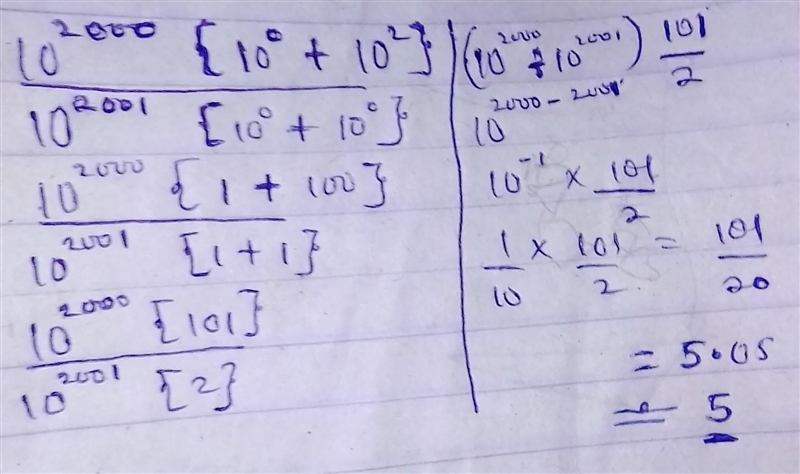 10^2000 {10^0 + 10^2}
10^2001 {10^0 + 10^0}
10^2000 {1 + 100}
10^2001 [1 + 1}
10^2000 [101}
10^2001 [2}
(10^2000 ÷ 10^2001) 101/2
10^2000-2001
10^-1 × 101/2
1/10 × 101/2 = 101/20
= 5.05
= 5